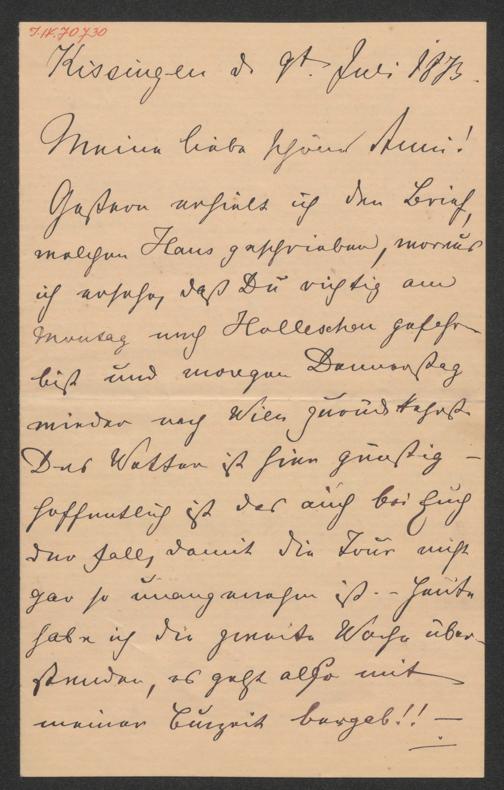 I.N. 70730
Kissingen d. 9t. Juli 1873.
Meine liebe schöne Anni!
Gestern erhielt ich den Brief,
welchen Hans geschrieben, woraus
ich ersehe, daß Du richtig am
Montag nach Holleschau gefahren
bist und morgen Donnerstag
wieder nach Wien zurückkehrst
Das Wetter ist hier günstig –
hoffentlich ist das auch bei Euch
der Fall, damit die Tour nicht
gar so unangenehm ist. – Heute
habe ich die zweite Woche über-
standen, es geht also mit
meiner Curzeit bergab!! –